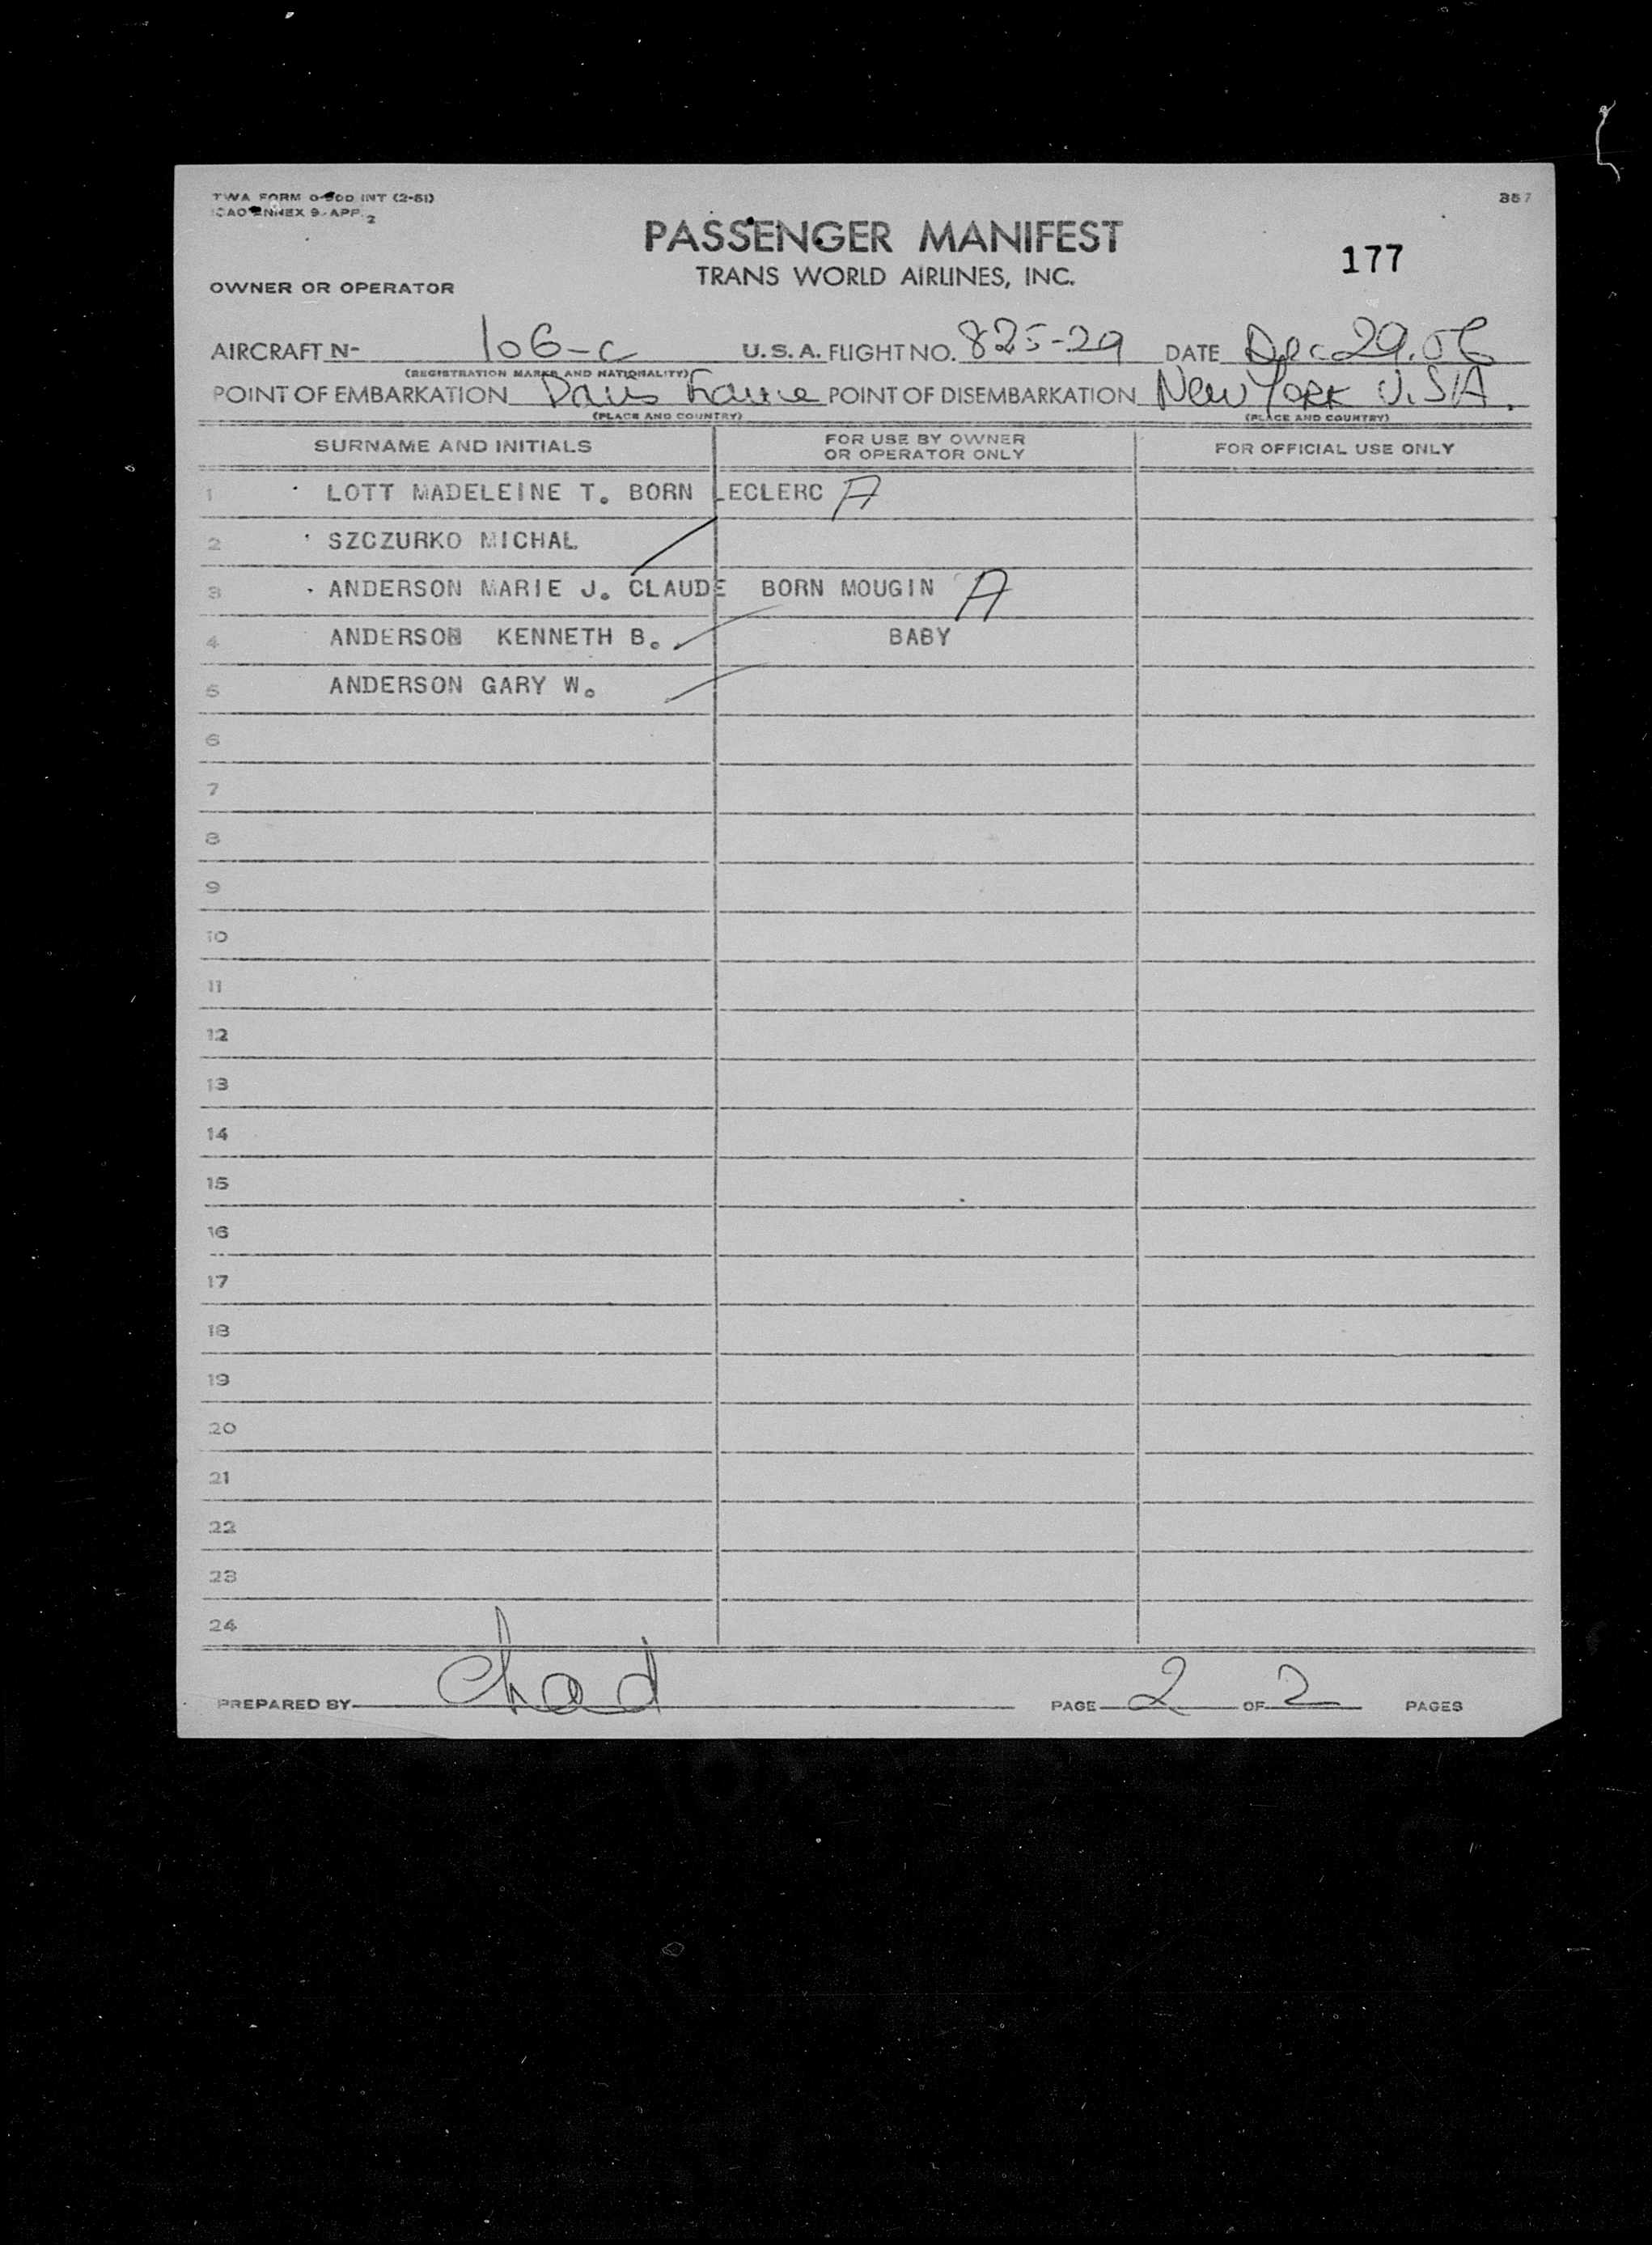 TWA FORM O-500 INT (2-51)
ICAO ANNEX 9-APP. 2
357
PASSENGER MANIFEST
TRANS WORLD AIRLINES, INC.
177
OWNER OR OPERATOR
AIRCRAFT N- 106-C U.S.A. FLIGHT NO. 825-29 DATE Dec 29.56
(REGISTRATION MARKS AND NATIONALITY)
POINT OF EMBARKATION Paris France POINT OF DISEMBARKATION New York U.S.A.
(PLACE AND COUNTRY) (PLACE AND COUNTRY)
SURNAME AND INITIALS FOR USE BY OWNER OR OPERATOR ONLY FOR OFFICIAL USE ONLY
1 LOTT MADELEINE T. BORN LECLERC A
2 SZCZURKO MICHAL
3 ANDERSON MARIE J. CLAUDE BORN MOUGIN A
4 ANDERSON KENNETH B. BABY
5 ANDERSON GARY W.
6
7
8
9
10
11
12
13
14
15
16
17
18
19
20
21
22
23
24
PREPARED BY Chad PAGE 2 OF 2 PAGES